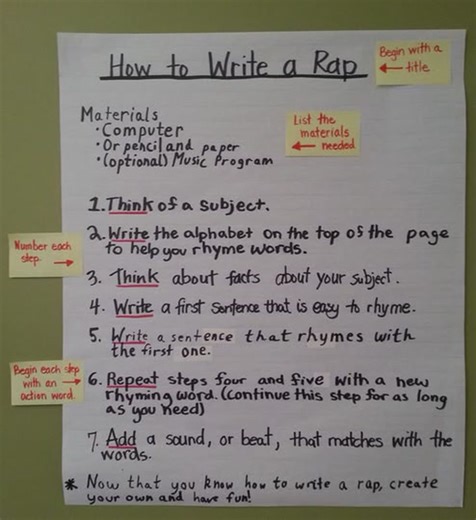 How to Write a Rap
Begin with a
← title
Materials
• Computer
• Or pencil and paper
• (optional) Music Program
List the
materials
← needed
1. Think of a subject.
2. Write the alphabet on the top of the page
to help you rhyme words.
Number each
step. →
3. Think about facts about your subject.
4. Write a first sentence that is easy to rhyme.
5. Write a sentence that rhymes with
the first one.
Begin each step
with an →
action word.
6. Repeat steps four and five with a new
rhyming word. (Continue this step for as long
as you need)
7. Add a sound, or beat, that matches with the
words.
* Now that you know how to write a rap, create
your own and have fun!